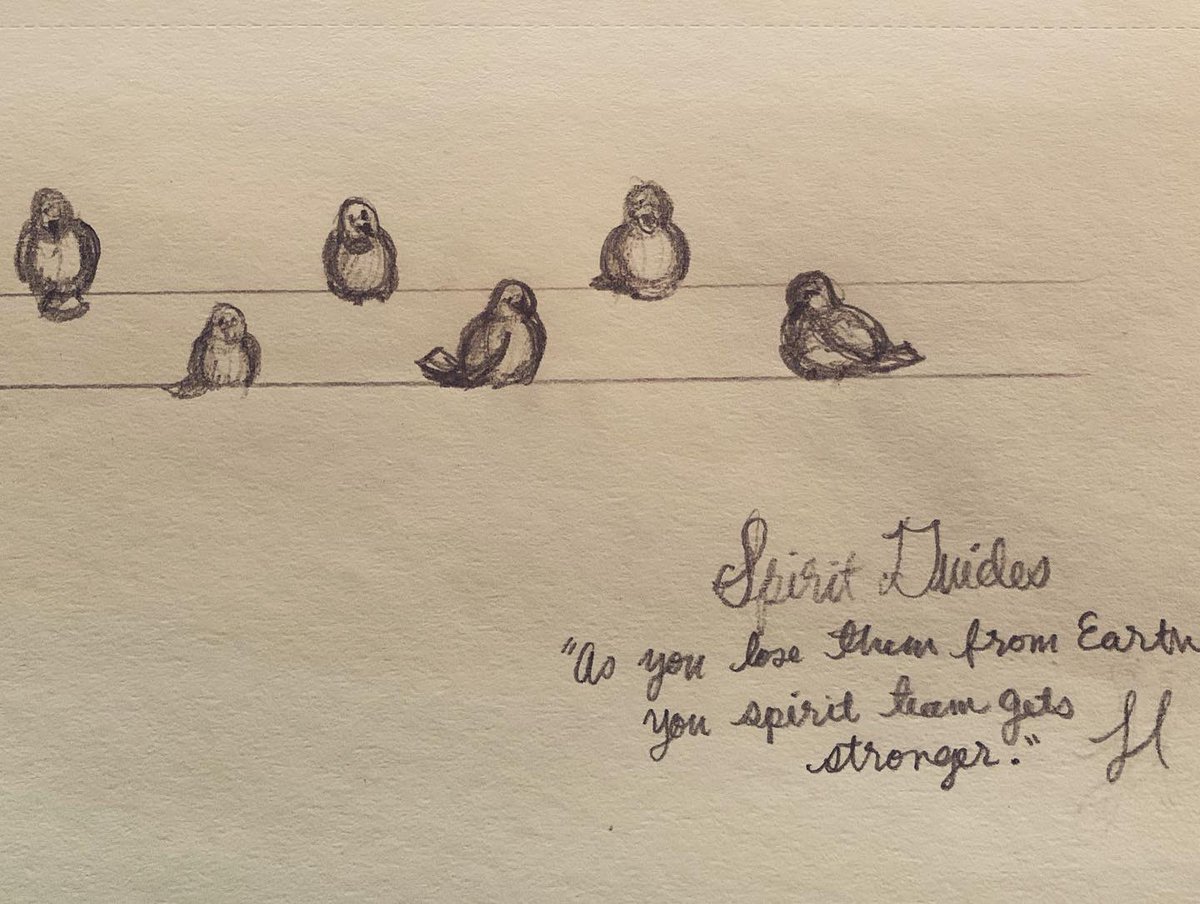 Spirit Guides
"As you lose them from Earth
you spirit team gets
stronger."